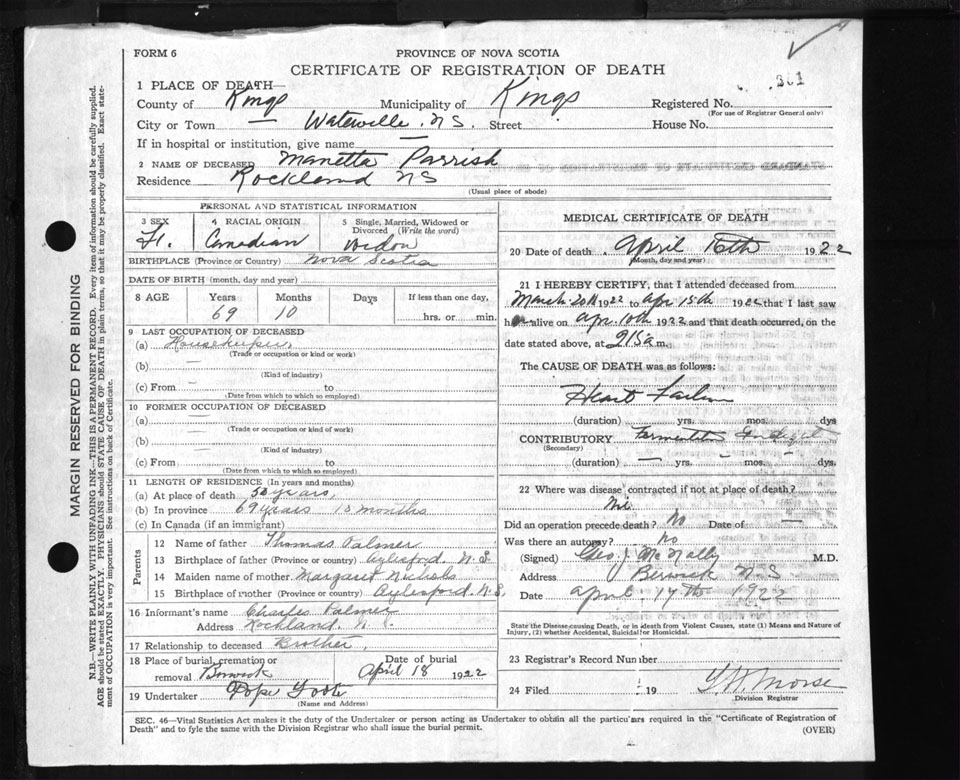 FORM 6
PROVINCE OF NOVA SCOTIA
CERTIFICATE OF REGISTRATION OF DEATH
301
1 PLACE OF DEATH—
County of Kings Municipality of Kings Registered No.
(For use of Registrar General only)
City or Town Waterville N.S. Street House No.
If in hospital or institution, give name —
2 NAME OF DECEASED Manetta Parrish
Residence Rockland NS
(Usual place of abode)
PERSONAL AND STATISTICAL INFORMATION
3 SEX 4 RACIAL ORIGIN 5 Single, Married, Widowed or Divorced (Write the word)
Canadian Widow
BIRTHPLACE (Province or Country) Nova Scotia
DATE OF BIRTH (month, day and year)
8 AGE Years Months Days If less than one day,
69 10 hrs. or min.
9 LAST OCCUPATION OF DECEASED
(a) Housekeeper
(Trade or occupation or kind or work)
(b)
(Kind of industry)
(c) From — to
(Date from which to which so employed)
10 FORMER OCCUPATION OF DECEASED
(a) —
(Trade or occupation or kind of work)
(b) —
(Kind of industry)
(c) From to
(Date from which to which so employed)
11 LENGTH OF RESIDENCE (In years and months)
(a) At place of death years
(b) In province 69 years 10 months
(c) In Canada (if an immigrant)
Parents
12 Name of father Thomas Palmer
13 Birthplace of father (Province or country) Aylesford. N.S.
14 Maiden name of mother Margaret Nichols
15 Birthplace of mother (Province or country) Aylesford. N.S.
16 Informant's name Charles Palmer
Address Rockland N.
17 Relationship to deceased Brother
18 Place of burial, cremation or removal Berwick Date of burial April 18 1922
19 Undertaker Pope
(Name and Address)
MEDICAL CERTIFICATE OF DEATH
20 Date of death April 16th 1922
(Month, day and year)
21 I HEREBY CERTIFY, that I attended deceased from
March 20th 1922 to Apr 15th 1922 that I last saw
h alive on Apr. 10th 1922 and that death occurred, on the
date stated above, at 215 a m.
The CAUSE OF DEATH was as follows:
Heart Failure
(duration) yrs. mos. dys
CONTRIBUTORY
(Secondary)
(duration) — yrs. — mos. — dys.
22 Where was disease contracted if not at place of death?
Did an operation precede death? No Date of —
Was there an autopsy? No
(Signed) Geo. J. McNally M.D.
Address Berwick N.S
Date April 17th 1922
State the Disease causing Death, or in death from Violent Causes, state (1) Means and Nature of
Injury, (2) whether Accidental, Suicidal or Homicidal.
23 Registrar's Record Number
24 Filed 19 Morse
Division Registrar
SEC. 46—Vital Statistics Act makes it the duty of the Undertaker or person acting as Undertaker to obtain all the particulars required in the "Certificate of Registration of
Death" and to fyle the same with the Division Registrar who shall issue the burial permit.
(OVER)
MARGIN RESERVED FOR BINDING
N.B.—WRITE PLAINLY WITH UNFADING INK—THIS IS A PERMANENT RECORD. Every item of information should be carefully supplied.
AGE should be stated EXACTLY. PHYSICIANS should STATE CAUSE OF DEATH in plain terms, so that it may be properly classified. Exact state-
ment of OCCUPATION is very important. See instructions on back of Certificate.